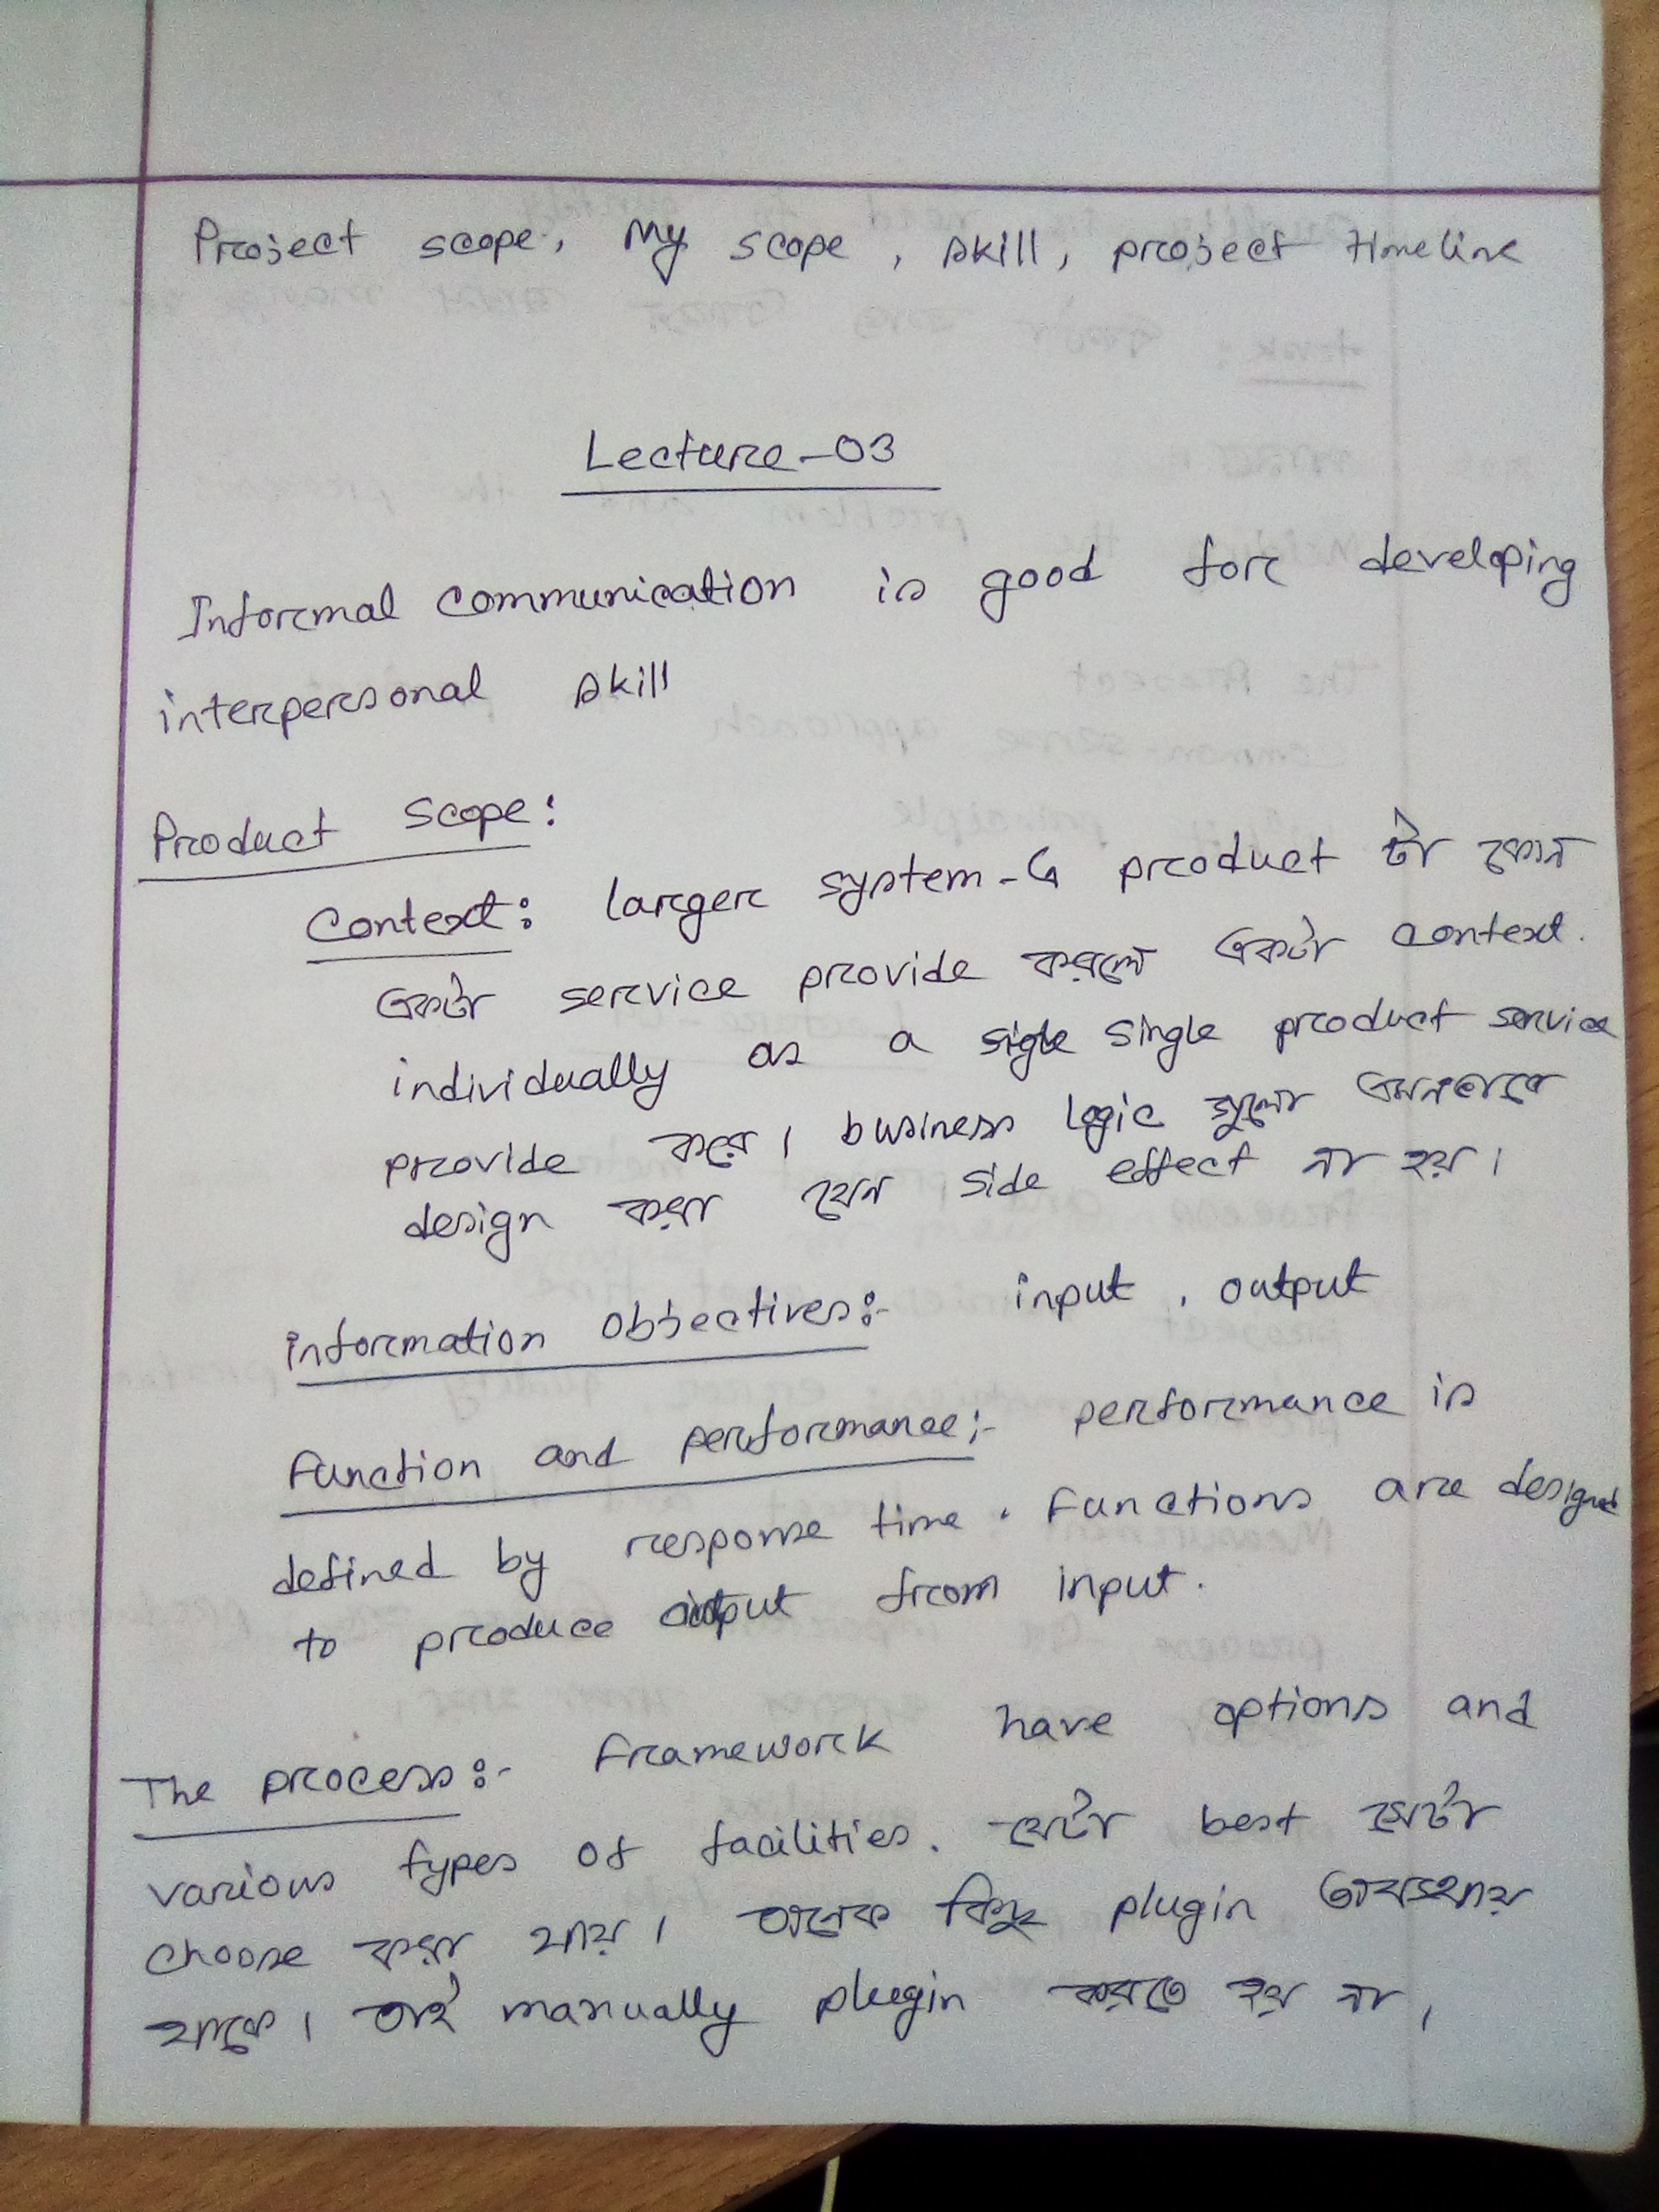 Project scope, My scope, skill, project timeline
Lecture-03
Informal communication is good for developing
interpersonal skill
Product Scope:
Context: larger system-এ product টা কোন
একটা service provide করলে একটা context.
individually as a single product service
provide করে। business logic গুলো এমনভাবে
design করা যেন side effect না হয়।
information objectives:- input, output
Function and performance:- performance is
defined by response time. Functions are designed
to produce output from input.
The process:- Framework have options and
various types of facilities. যেটা best সেটা
choose করা যায়। অনেক কিছু plugin অবস্থায়
থাকে। তাই manually plugin করতে হয় না।